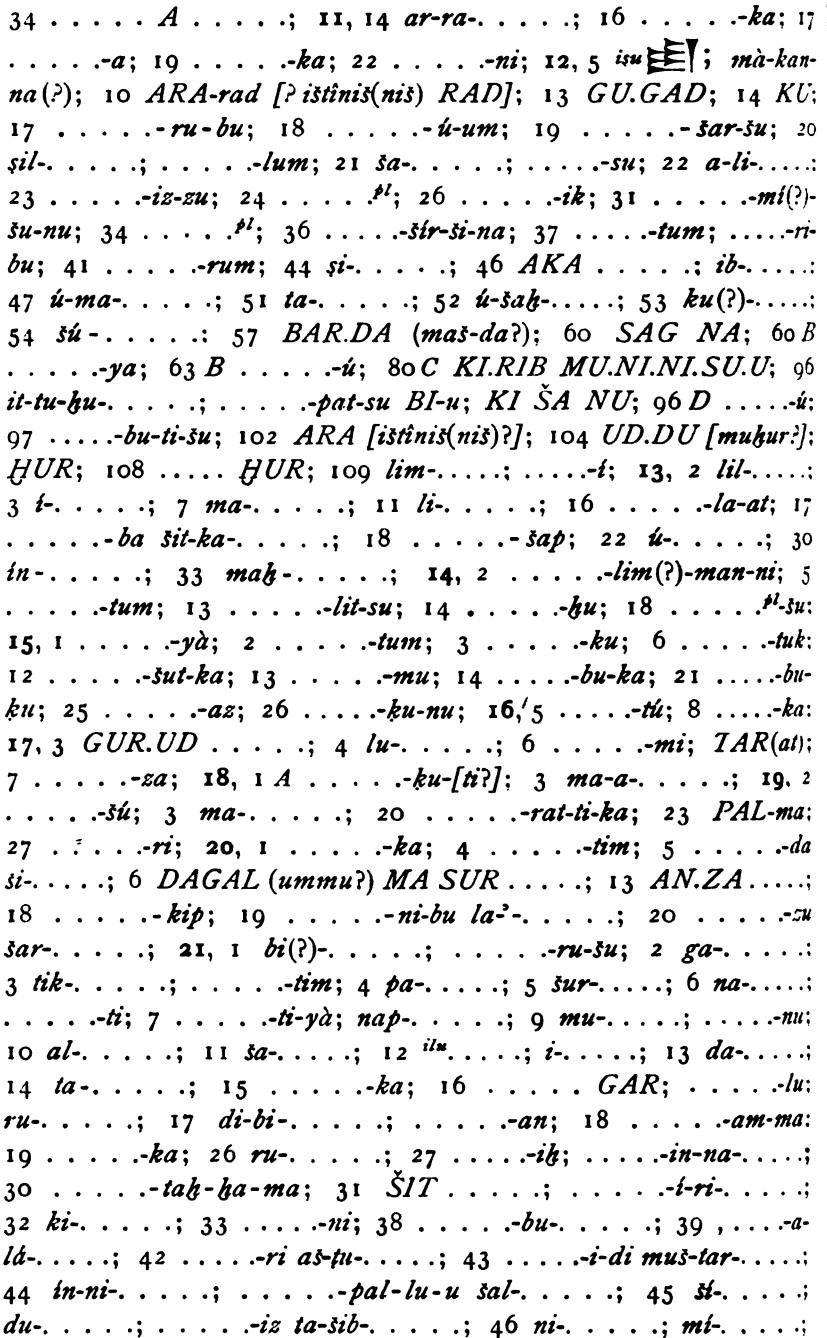 34 . . . . . A . . . . .; 11, 14 ar-ra-. . . . .; 16 . . . . .-ka; 17
. . . . .-a; 19 . . . . .-ka; 22 . . . . .-ni; 12, 5 iṣu ; mà-kan-
na(?); 10 ARA-rad [? ištîniš(niš) RAD]; 13 GU.GAD; 14 KU;
17 . . . . .-ru-bu; 18 . . . . .-ú-um; 19 . . . . .-šar-šu; 20
ṣil-. . . . .; . . . . .-lum; 21 ša-. . . . .; . . . . .-su; 22 a-li-. . . . .;
23 . . . . .-iz-zu; 24 . . . . . pl; 26 . . . . .-ik; 31 . . . . .-mí(?)-
šu-nu; 34 . . . . . pl; 36 . . . . .-šír-ši-na; 37 . . . . .-tum; . . . . .-ri-
bu; 41 . . . . .-rum; 44 ṣi-. . . . .; 46 AKA . . . . .; ib-. . . . .:
47 ú-ma-. . . . .; 51 ta-. . . . .; 52 ú-šaḫ-. . . . .; 53 ku(?)-. . . . .;
54 šú-. . . . .: 57 BAR.DA (maš-da?); 60 SAG NA; 60 B
. . . . .-ya; 63 B . . . . .-ú; 80 C KI.RIB MU.NI.NI.SU.U; 96
it-tu-ḫu-. . . . .; . . . . .-pat-su BI-u; KI ŠA NU; 96 D . . . . .-ú;
97 . . . . .-bu-ti-šu; 102 ARA [ištîniš(niš)?]; 104 UD.DU [muḫur?];
ḪUR; 108 . . . . . ḪUR; 109 lim-. . . . .; . . . . .-í; 13, 2 lil-. . . . .;
3 í-. . . . .; 7 ma-. . . . .; 11 li-. . . . .; 16 . . . . .-la-at; 17
. . . . .-ba šit-ka-. . . . .; 18 . . . . .-šap; 22 ú-. . . . .; 30
ín-. . . . .; 33 maḫ-. . . . .; 14, 2 . . . . .-lim(?)-man-ni; 5
. . . . .-tum; 13 . . . . .-lit-su; 14 . . . . .-ḫu; 18 . . . . . pl-šu:
15, 1 . . . . .-yà; 2 . . . . .-tum; 3 . . . . .-ku; 6 . . . . .-tuk:
12 . . . . .-šut-ka; 13 . . . . .-mu; 14 . . . . .-bu-ka; 21 . . . . .-bu-
ḳu; 25 . . . . .-az; 26 . . . . .-ḳu-nu; 16, 5 . . . . .-tú; 8 . . . . .-ka:
17, 3 GUR.UD . . . . .; 4 lu-. . . . .; 6 . . . . .-mi; TAR(at);
7 . . . . .-za; 18, 1 A . . . . .-ḳu-[ti?]; 3 ma-a-. . . . .; 19, 2
. . . . .-šú; 3 ma-. . . . .; 20 . . . . .-rat-ti-ka; 23 PAL-ma;
27 . . . . .-ri; 20, 1 . . . . .-ka; 4 . . . . .-tim; 5 . . . . .-da
ši-. . . . .; 6 DAGAL (ummu?) MA SUR . . . . .; 13 AN.ZA . . . . .;
18 . . . . .-kip; 19 . . . . .-ni-bu la-ʾ-. . . . .; 20 . . . . .-zu
šar-. . . . .; 21, 1 bi(?)-. . . . .; . . . . .-ru-šu; 2 ga-. . . . .:
3 tik-. . . . .; . . . . .-tim; 4 pa-. . . . .; 5 šur-. . . . .; 6 na-. . . . .;
. . . . .-ti; 7 . . . . .-ti-yà; nap-. . . . .; 9 mu-. . . . .; . . . . .-nu;
10 al-. . . . .; 11 ša-. . . . .; 12 ilu. . . . .; i-. . . . .; 13 da-. . . . .;
14 ta-. . . . .; 15 . . . . .-ka; 16 . . . . . GAR; . . . . .-lu;
ru-. . . . .; 17 di-bi-. . . . .; . . . . .-an; 18 . . . . .-am-ma:
19 . . . . .-ka; 26 ru-. . . . .; 27 . . . . .-iḫ; . . . . .-in-na-. . . . .;
30 . . . . .-taḫ-ḫa-ma; 31 ŠIT . . . . .; . . . . .-í-ri-. . . . .;
32 ki-. . . . .; 33 . . . . .-ni; 38 . . . . .-bu-. . . . .; 39 , . . . .-a-
lá-. . . . .; 42 . . . . .-ri aš-ṭu-. . . . .; 43 . . . . .-i-di muš-tar-. . . . .;
44 ín-ni-. . . . .; . . . . .-pal-lu-u šal-. . . . .; 45 ší-. . . . .;
du-. . . . .; . . . . .-iz ta-šib-. . . . .; 46 ni-. . . . .; mí-. . . . .;